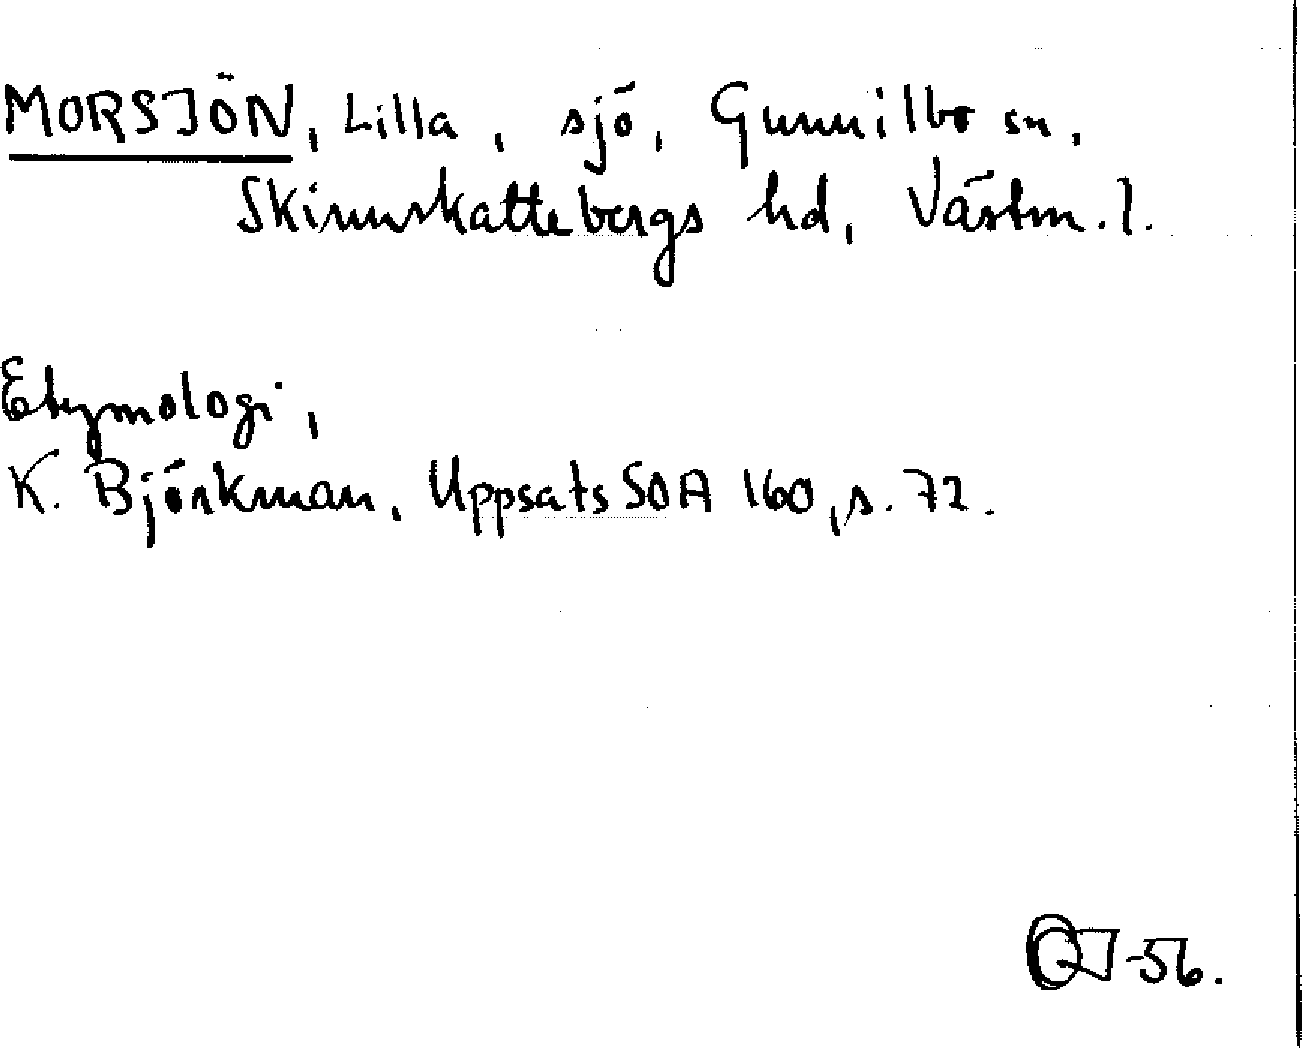 MORSJÖN, Lilla, sjö, Gunnilbo sn,
Skinnskattebergs hd, Västm. l.
Etymologi,
K. Björkman, Uppsats SOA 160, s. 72.
-56.